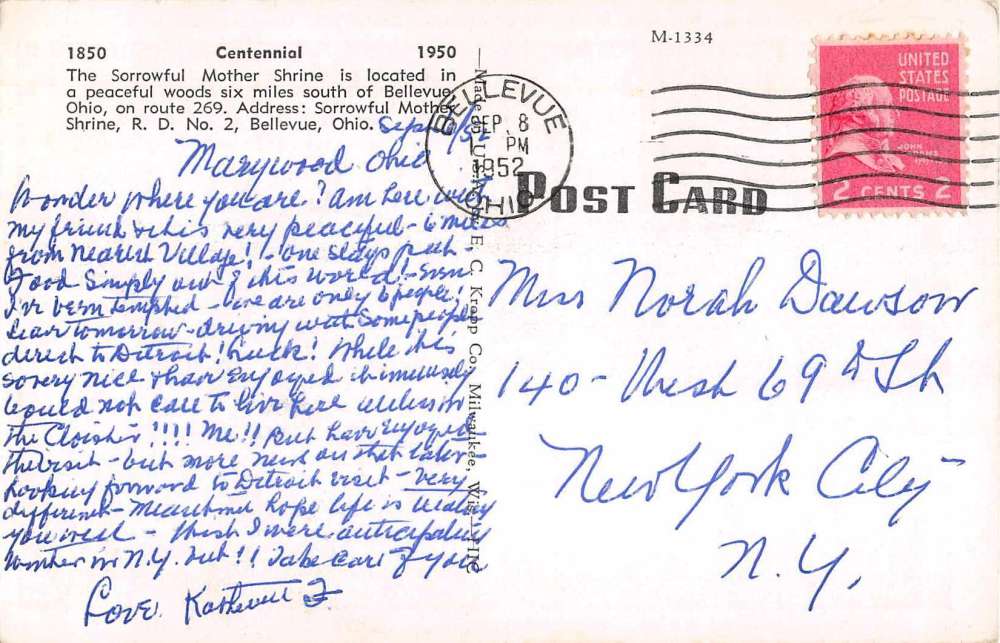 M-1334
1850 Centennial 1950
The Sorrowful Mother Shrine is located in
a peaceful woods six miles south of Bellevue,
Ohio, on route 269. Address: Sorrowful Mother
Shrine, R. D. No. 2, Bellevue, Ohio.
BELLEVUE
SEP. 8
PM
1952
OHIO
UNITED
STATES
POSTAGE
JOHN ADAMS
2 CENTS 2
POST CARD
Made in E. C. Kropp Co., Milwaukee, Wis.
Marywood Ohio
Wonder where you are? Am here with
my friend & it is very peaceful - 6 miles
from nearest Village! - one stays put
Food simply out of this world! - Even
I've been tempted - we are only 6 people!
Leave tomorrow - driving with some people
direct to Detroit! Luck! While it is
so very nice & have enjoyed immensely
would not care to live here unless in
the Cloister!!!! Me!! But have enjoyed
the visit - but more news on that later -
Looking forward to Detroit visit - Very
different - Meantime hope life is treating
you well - Wish I were anticipating
winter in N.Y. but!! Take care of you
Love.
Miss Norah Dawson
140 - West 69th St
New York City
N.Y.